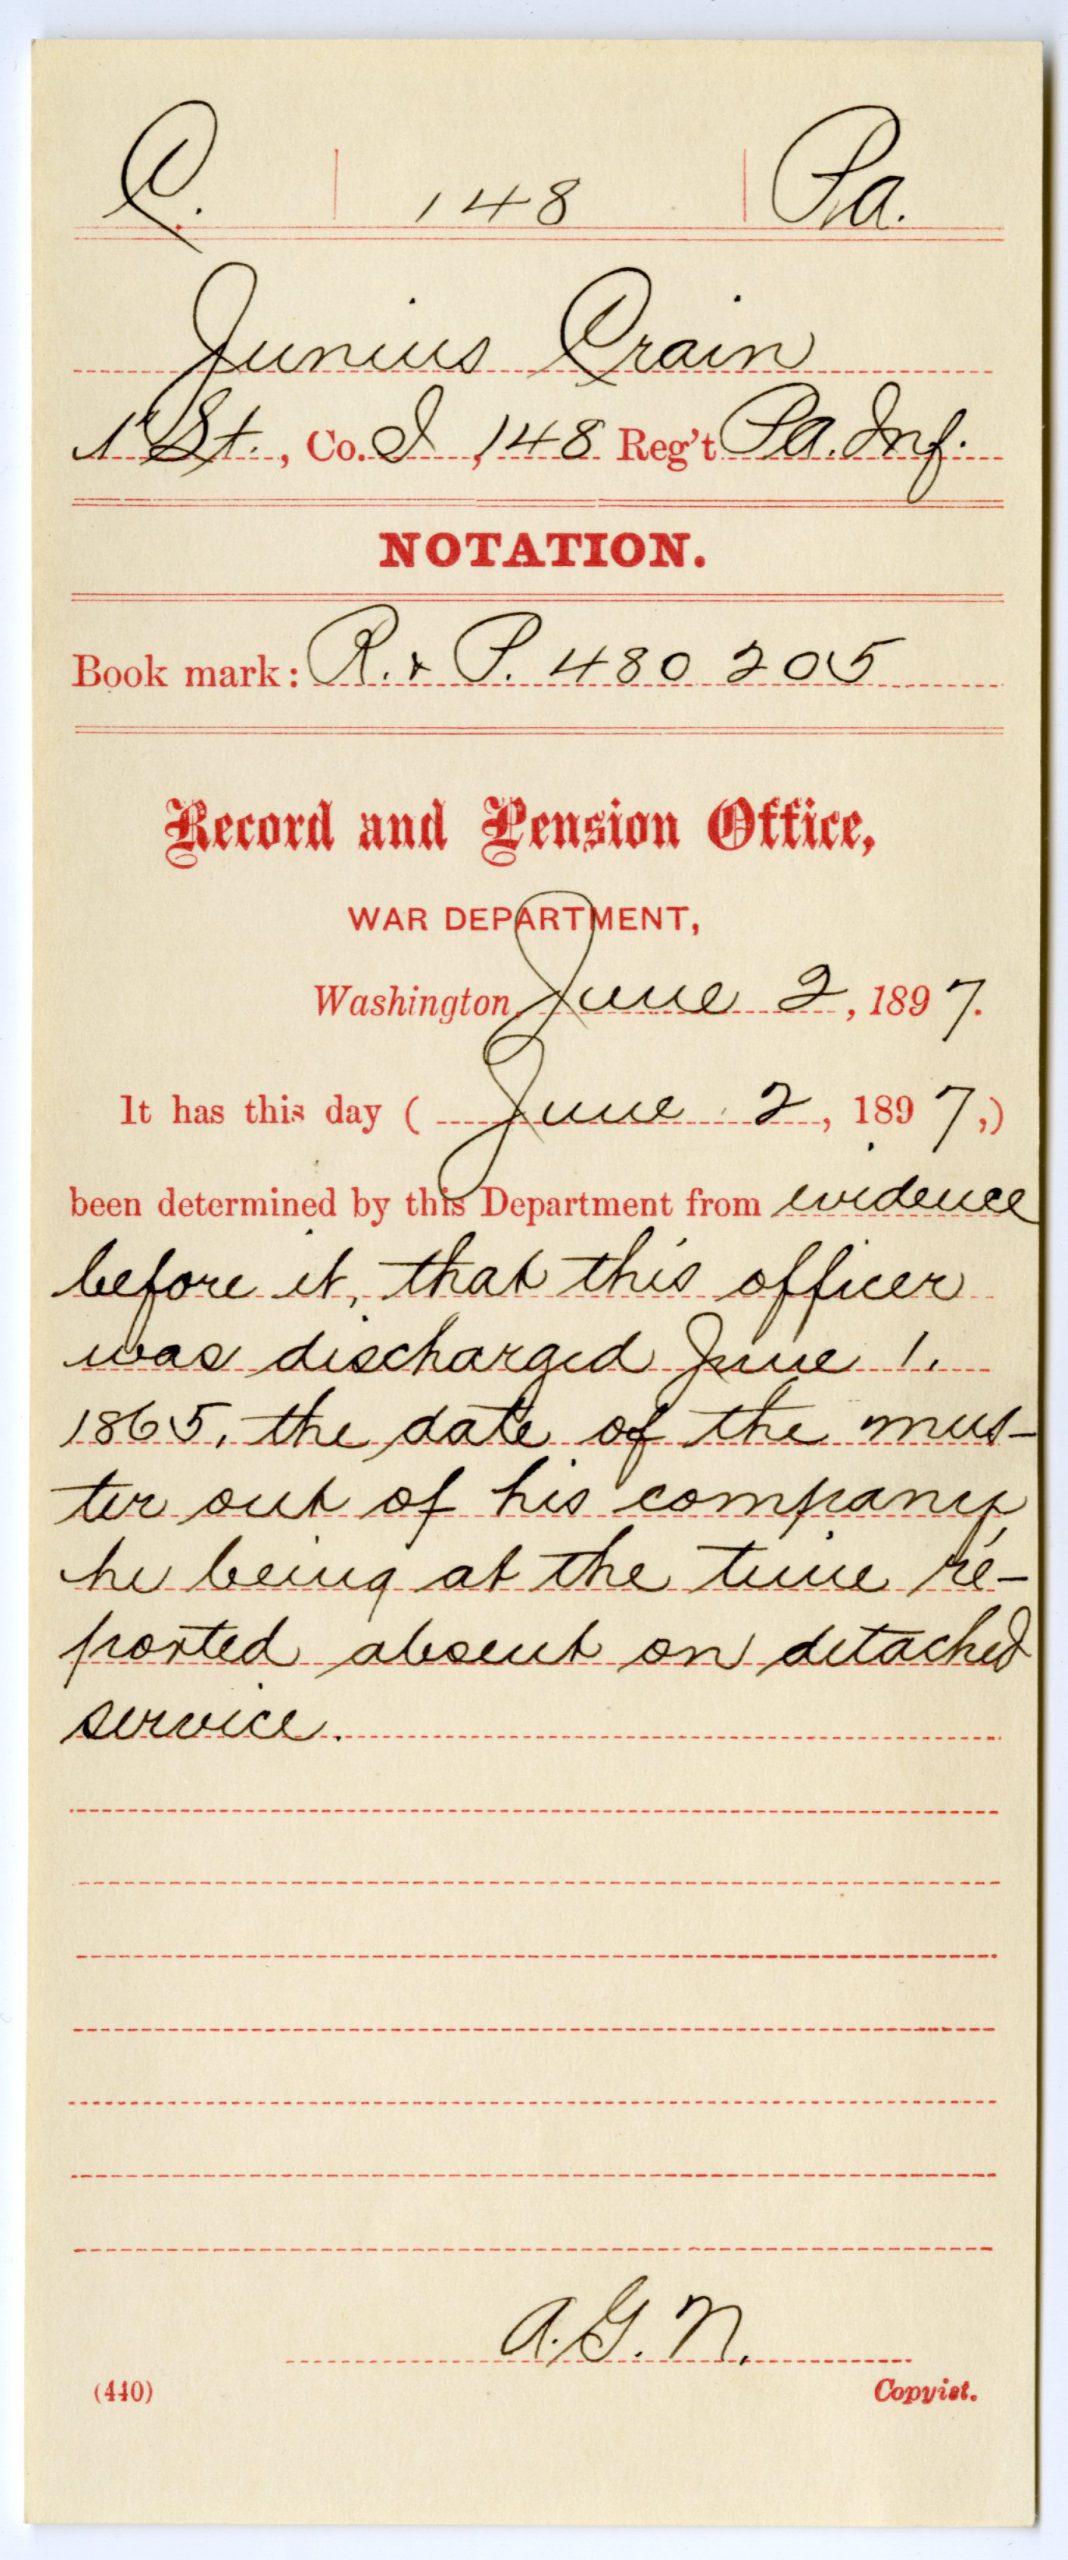 C. 148 Pa.
Junius Crain
1" Lt., Co. I, 148 Reg't Pa. Inf.
NOTATION.
Book mark: R. & P. 480 205
Record and Pension Office,
WAR DEPARTMENT,
Washington, June 2, 1897.
It has this day (June 2, 1897,)
been determined by this Department from evidence
before it, that this officer
was discharged June 1,
1865, the date of the mus-
ter out of his company,
he being at the time re-
ported absent on detached
service.
A. G. N.
(440) Copyist.